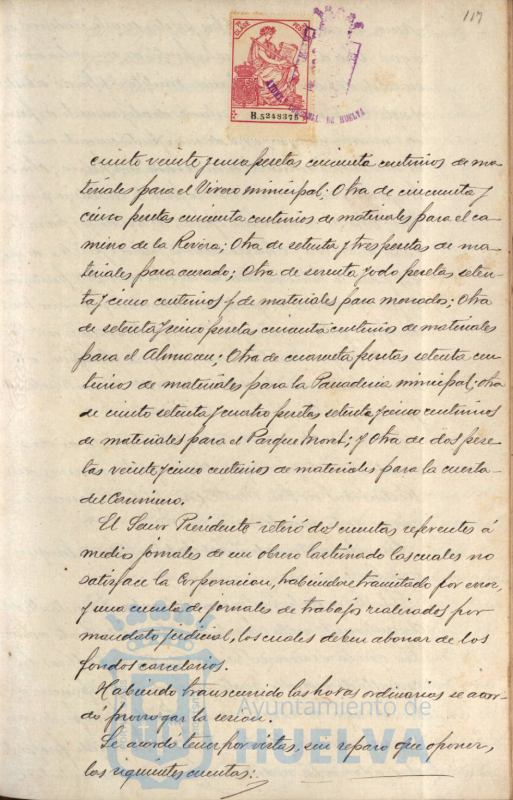 117
B.5248378
DE HUELVA
ciento veinte y cinco pesetas cincuenta centimos de ma-
teriales para el Vivero municipal; Otra de cincuenta y
cinco pesetas cincuenta centimos de materiales para el ca-
mino de la Rivera; Otra de setenta y tres pesetas de ma-
teriales para acerado; Otra de sesenta y ocho pesetas seten-
ta y cinco centimos de materiales para mercados; Otra
de setenta y cinco pesetas cincuenta centimos de materiales
para el Almacen; Otra de cuarenta pesetas setenta cen-
timos de materiales para la Panaderia municipal; otra
de ciento setenta y cuatro pesetas setenta y cinco centimos
de materiales para el Parque Moret; y Otra de dos pese-
tas veinte y cinco centimos de materiales para la cuesta
del Carnicero.
El Señor Presidente retiró dos cuentas referentes á
medio jornales de un obrero lastimado las cuales no
satisface la Corporacion, habiendose tramitado por error,
y una cuenta de jornales de trabajos realizados por
mandato judicial, los cuales deben abonar de los
fondos carcelarios.
Habiendo transcurrido las horas ordinarias se acor-
dó prorrogar la sesion.
Se acordó tener por vistas, sin reparo que oponer,
las siguientes cuentas:
Ayuntamiento de
HUELVA